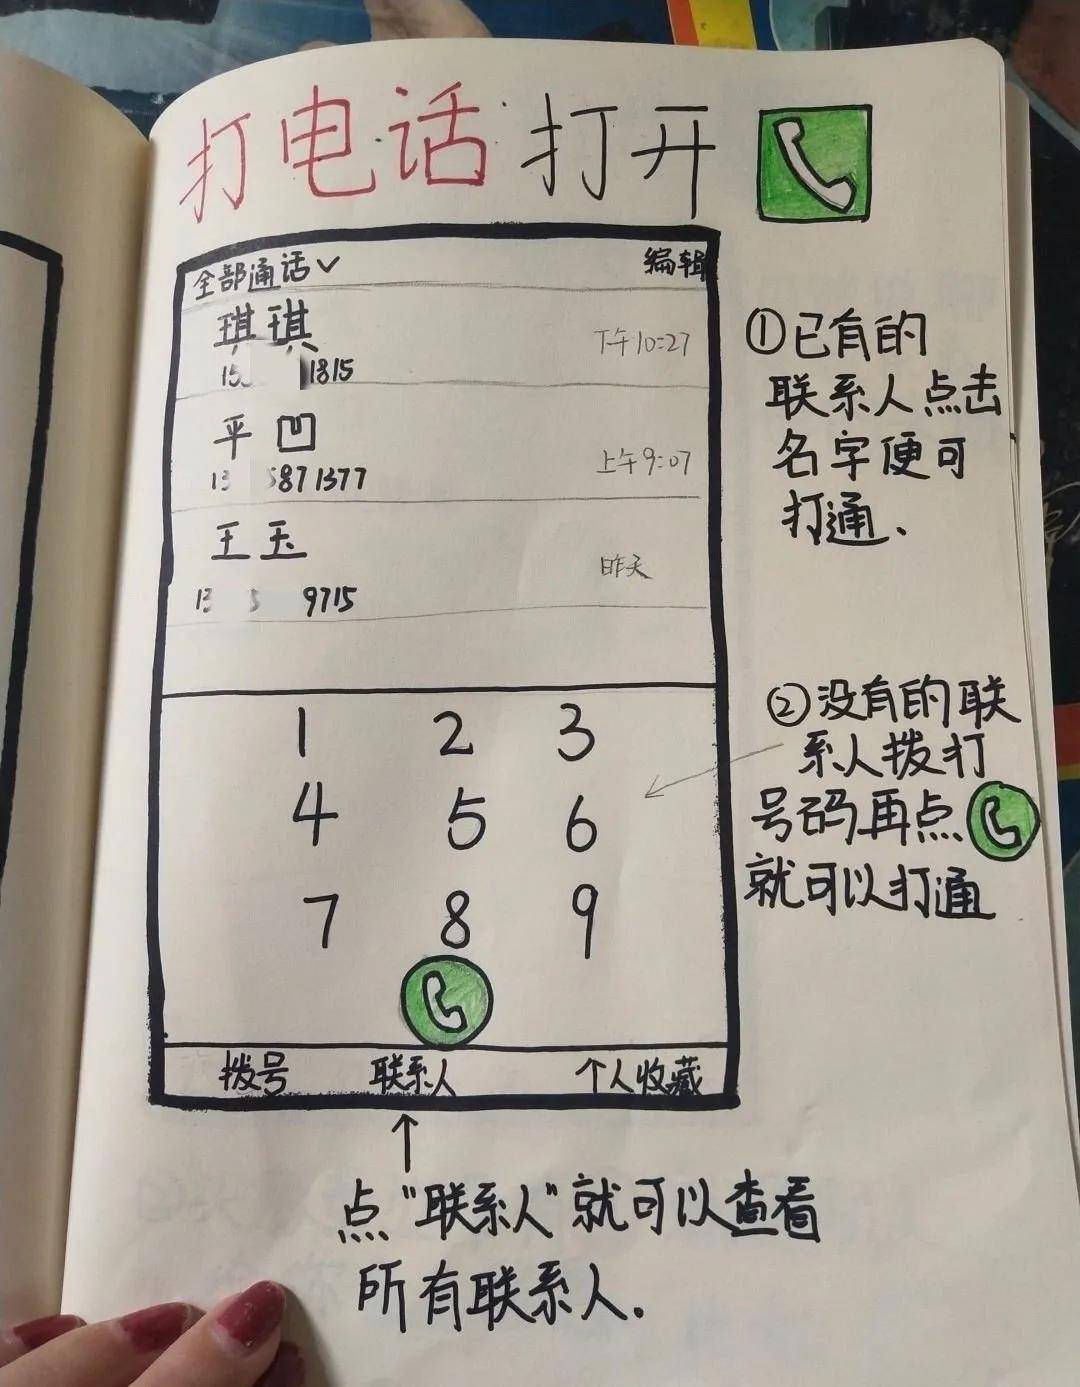 打电话 打开
全部通话 编辑
琪琪 下午10:27
15 1815
平凹 上午9:07
13 5871377
王玉 昨天
13 5 9715
①已有的
联系人点击
名字便可
打通.
②没有的联
系人拨打
号码再点
就可以打通
1 2 3
4 5 6
7 8 9
拨号 联系人 个人收藏
点“联系人”就可以查看
所有联系人.